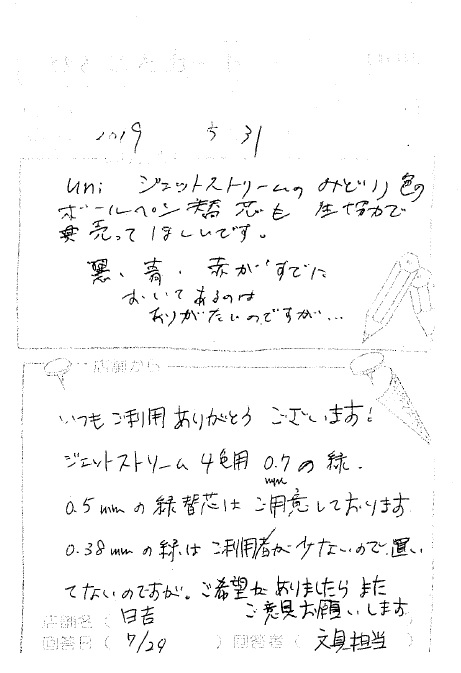 2019 5 31
uni ジェットストリームの みどり色の
ボールペン替芯も 生協で
売ってほしいです。
黒、青、赤がすでに
おいてあるのは
ありがたいのですが...
店舗から
いつもご利用ありがとうございます!
ジェットストリーム 4色用 0.7mmの緑、
0.5mmの緑替芯はご用意しております
0.38mmの緑はご利用者が少ないので、置い
てないのですが。ご希望がありましたらまた
ご意見お願いします
店舗名( 日吉
回答日( 7/29 ) 回答者( 文具担当 )